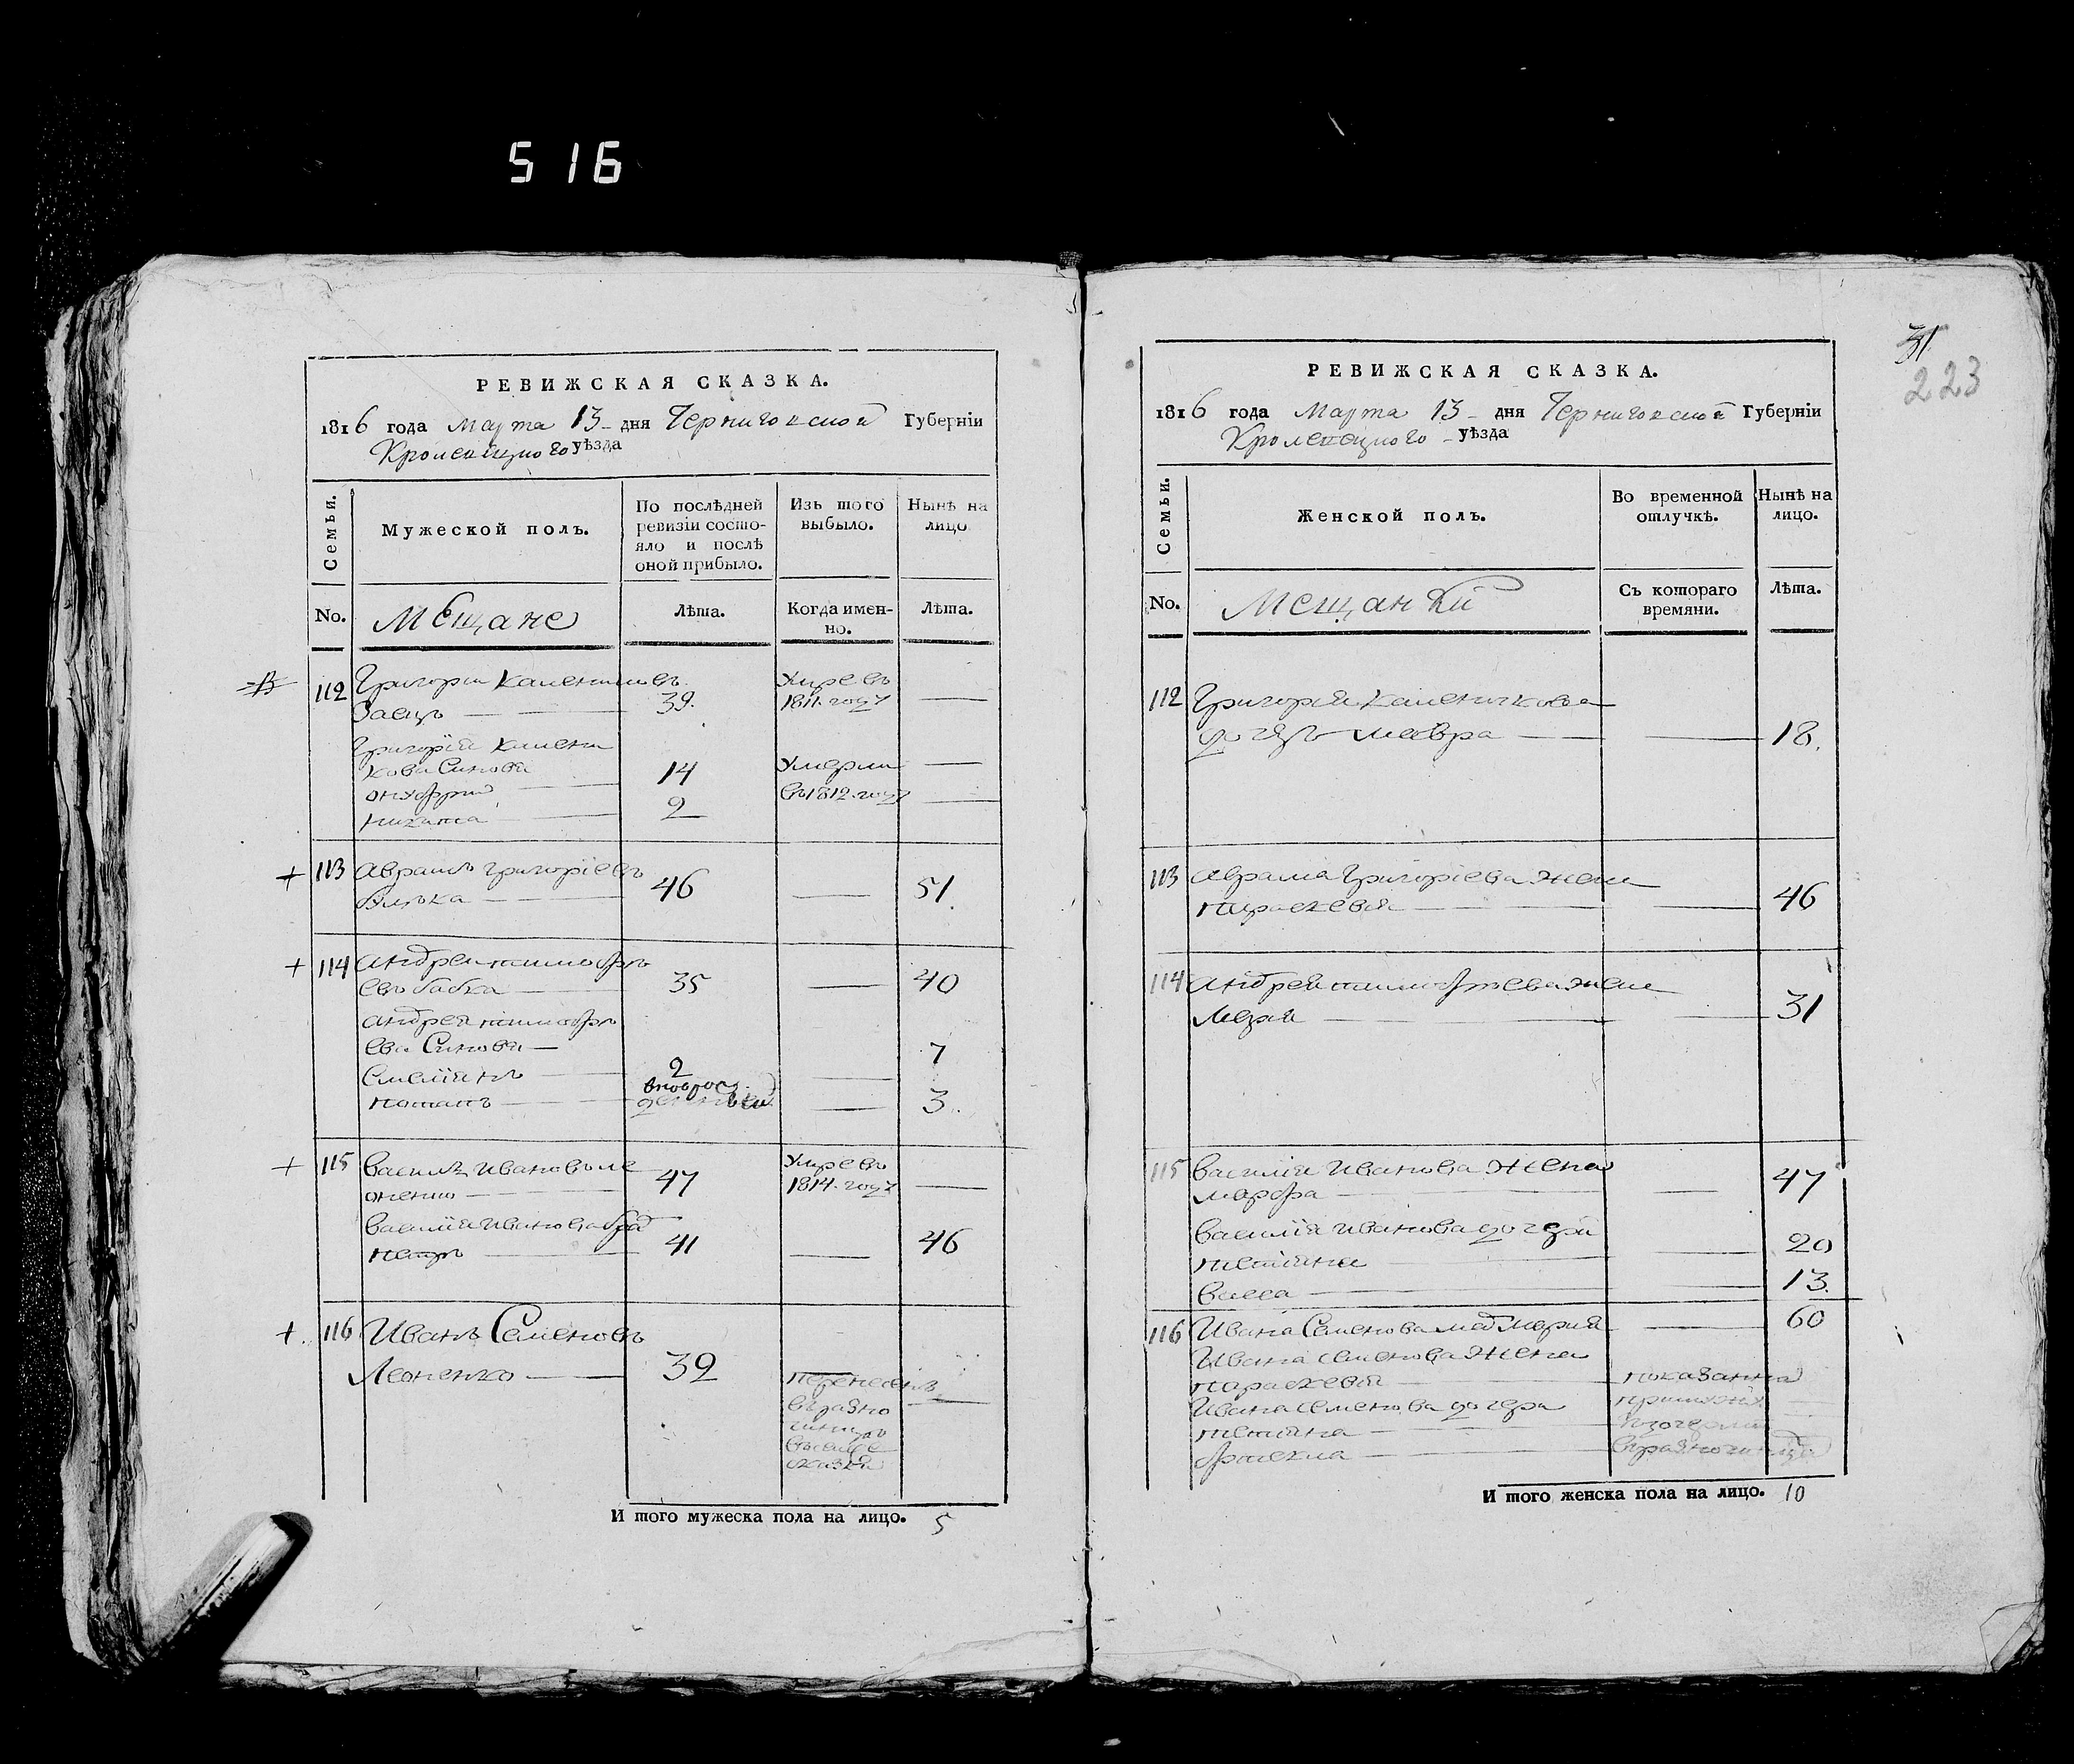 516
РЕВИЖСКАЯ СКАЗКА.
1816 года Марта 13 дня Черниговской Губерніи
Кролевецкого уѣзда
Семьи.
Мужеской полъ.
По послѣдней
ревизіи состо-
яло и послѣ
оной прибыло.
Изъ того
выбыло.
Нынѣ на
лицо
No.
Мещане
Лѣта.
Когда имен-
но.
Лѣта.
112 Григорій
Заецъ — 39. Умре въ 1811. году —
Григорія
Синовя
онуфрий 14 Умерли —
никита 2 въ 1812. году —
+ 113 Аврамъ Григоріевъ
46 — 51.
+ 114 Андрей тимофѣ
евъ бабка 35 — 40
Андрея тимофѣ
ева Синовя — 7
Емелиянъ 2 —
потапъ — 3.
+ 115 Василь Ивановъ ле
оненко 47 Умре въ 1814. году —
Василія Иванова брат
петръ 41 — 46
+ 116 Иванъ Семеновъ
Леоненко — 32
перенесенъ
въ разно
чинцов
сказки
И того мужеска пола на лицо. 5
31
223
РЕВИЖСКАЯ СКАЗКА.
1816 года Марта 13 - дня Черниговской Губерніи
Кролевецкого - уѣзда
Семьи.
Женской полъ.
Во временной
отлучкѣ.
Нынѣ на
лицо.
No.
Мещанки
Съ котораго
времяни.
Лѣта.
112 Григорія
дочерь мавра — 18.
113 Аврама Григоріева жена
параскевия — 46
114 Андрея тимофѣева жена
Мария — 31
115 Василія Иванова Жена
марфа — 47
Василія Иванова дочери
20
васса — 13.
116 Ивана Семенова мат Мария — 60
Ивана семенова жена
параскевия — показанна
Ивана семенова дочери
фтекла
И того женска пола на лицо. 10